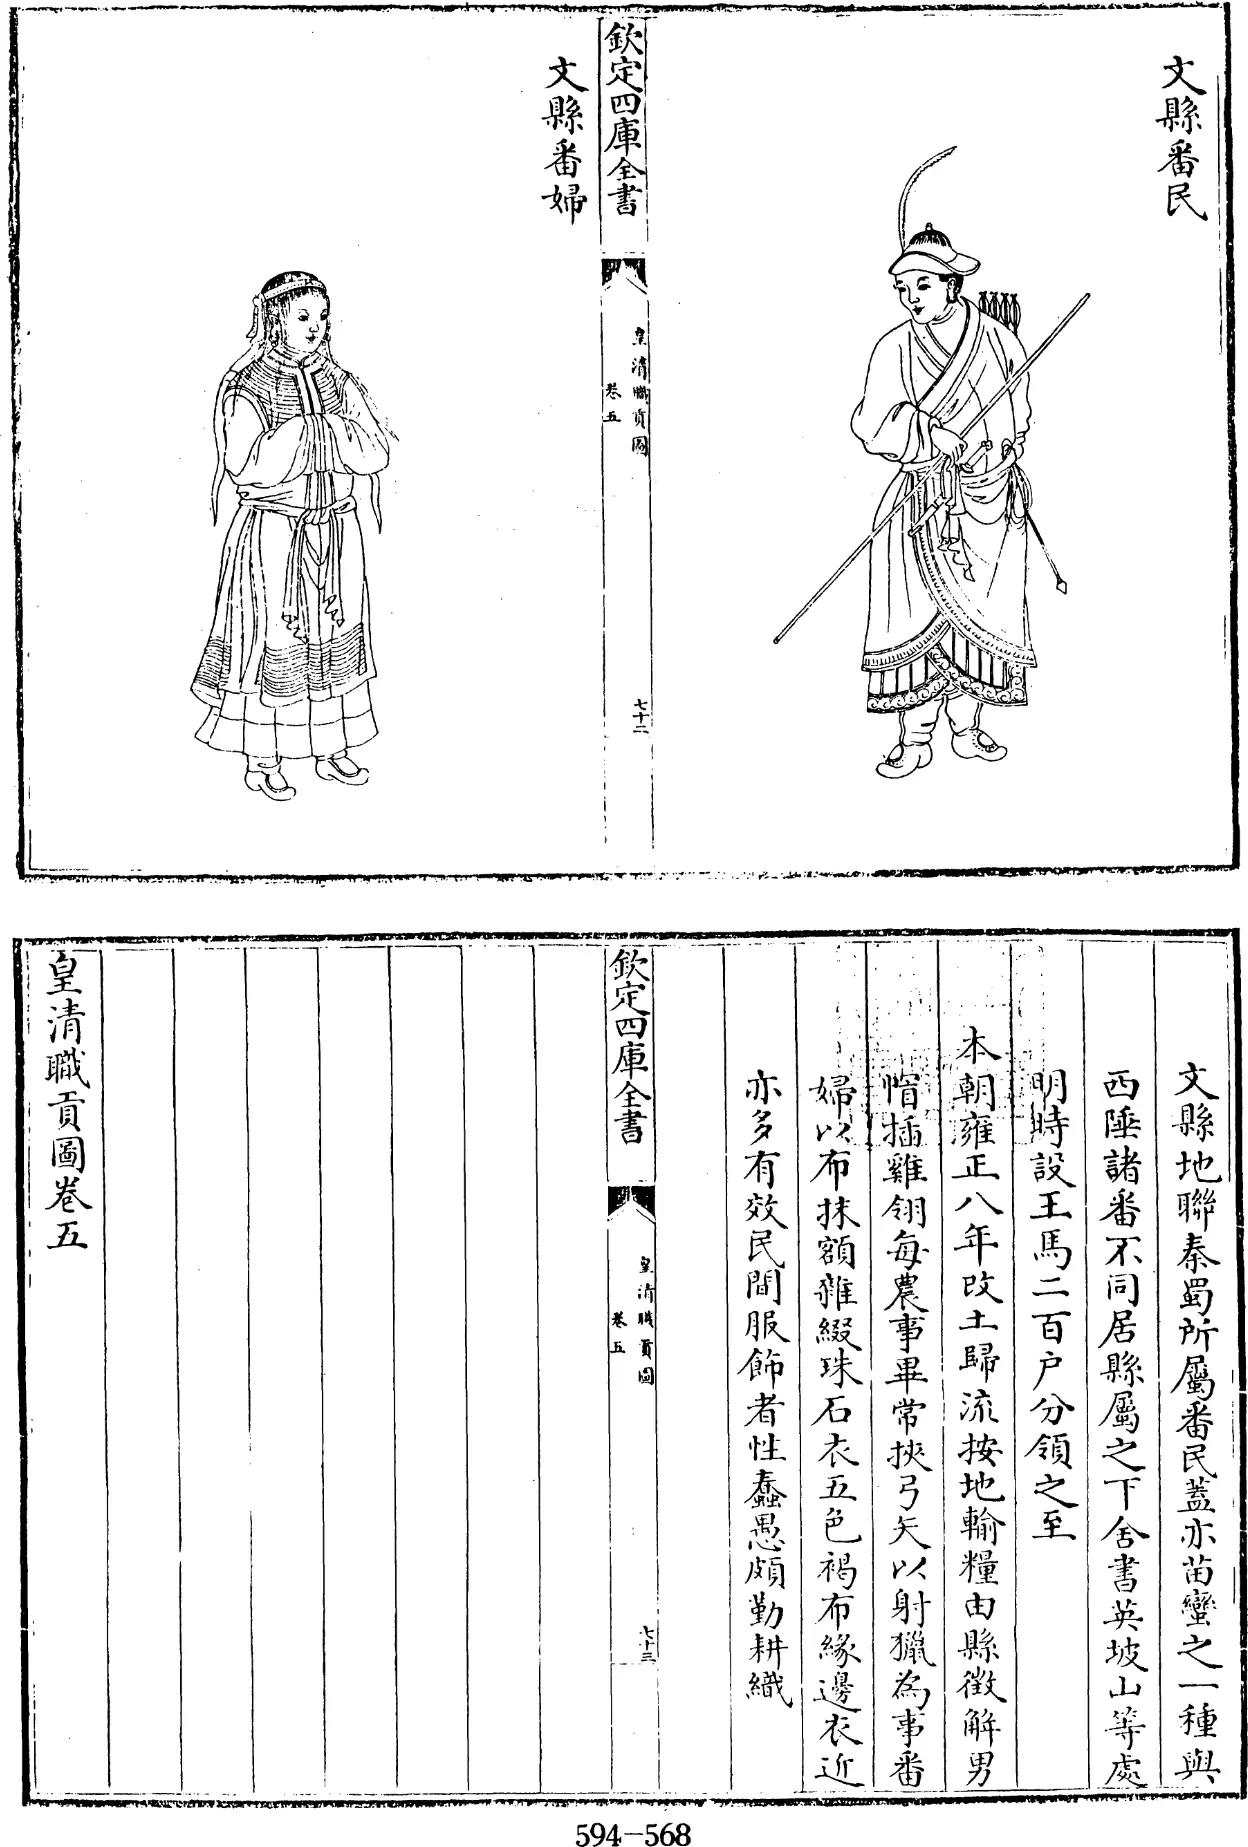 文縣番民
欽定四庫全書
皇清職貢圖
卷五
七十二
文縣番婦
文縣地聯秦蜀所屬番民蓋亦苗蠻之一種與
西陲諸番不同居縣屬之下舍書英坡山等處
明時設王馬二百户分領之至
本朝雍正八年改土歸流按地輸糧由縣徵解男
帽插雞翎每農事畢常挾弓矢以射獵為事番
婦以布抹額雜綴珠石衣五色褐布緣邊衣近
亦多有效民間服飾者性蠢愚頗勤耕織
欽定四庫全書
皇清職貢圖
卷五
七十三
皇清職貢圖卷五
594-568